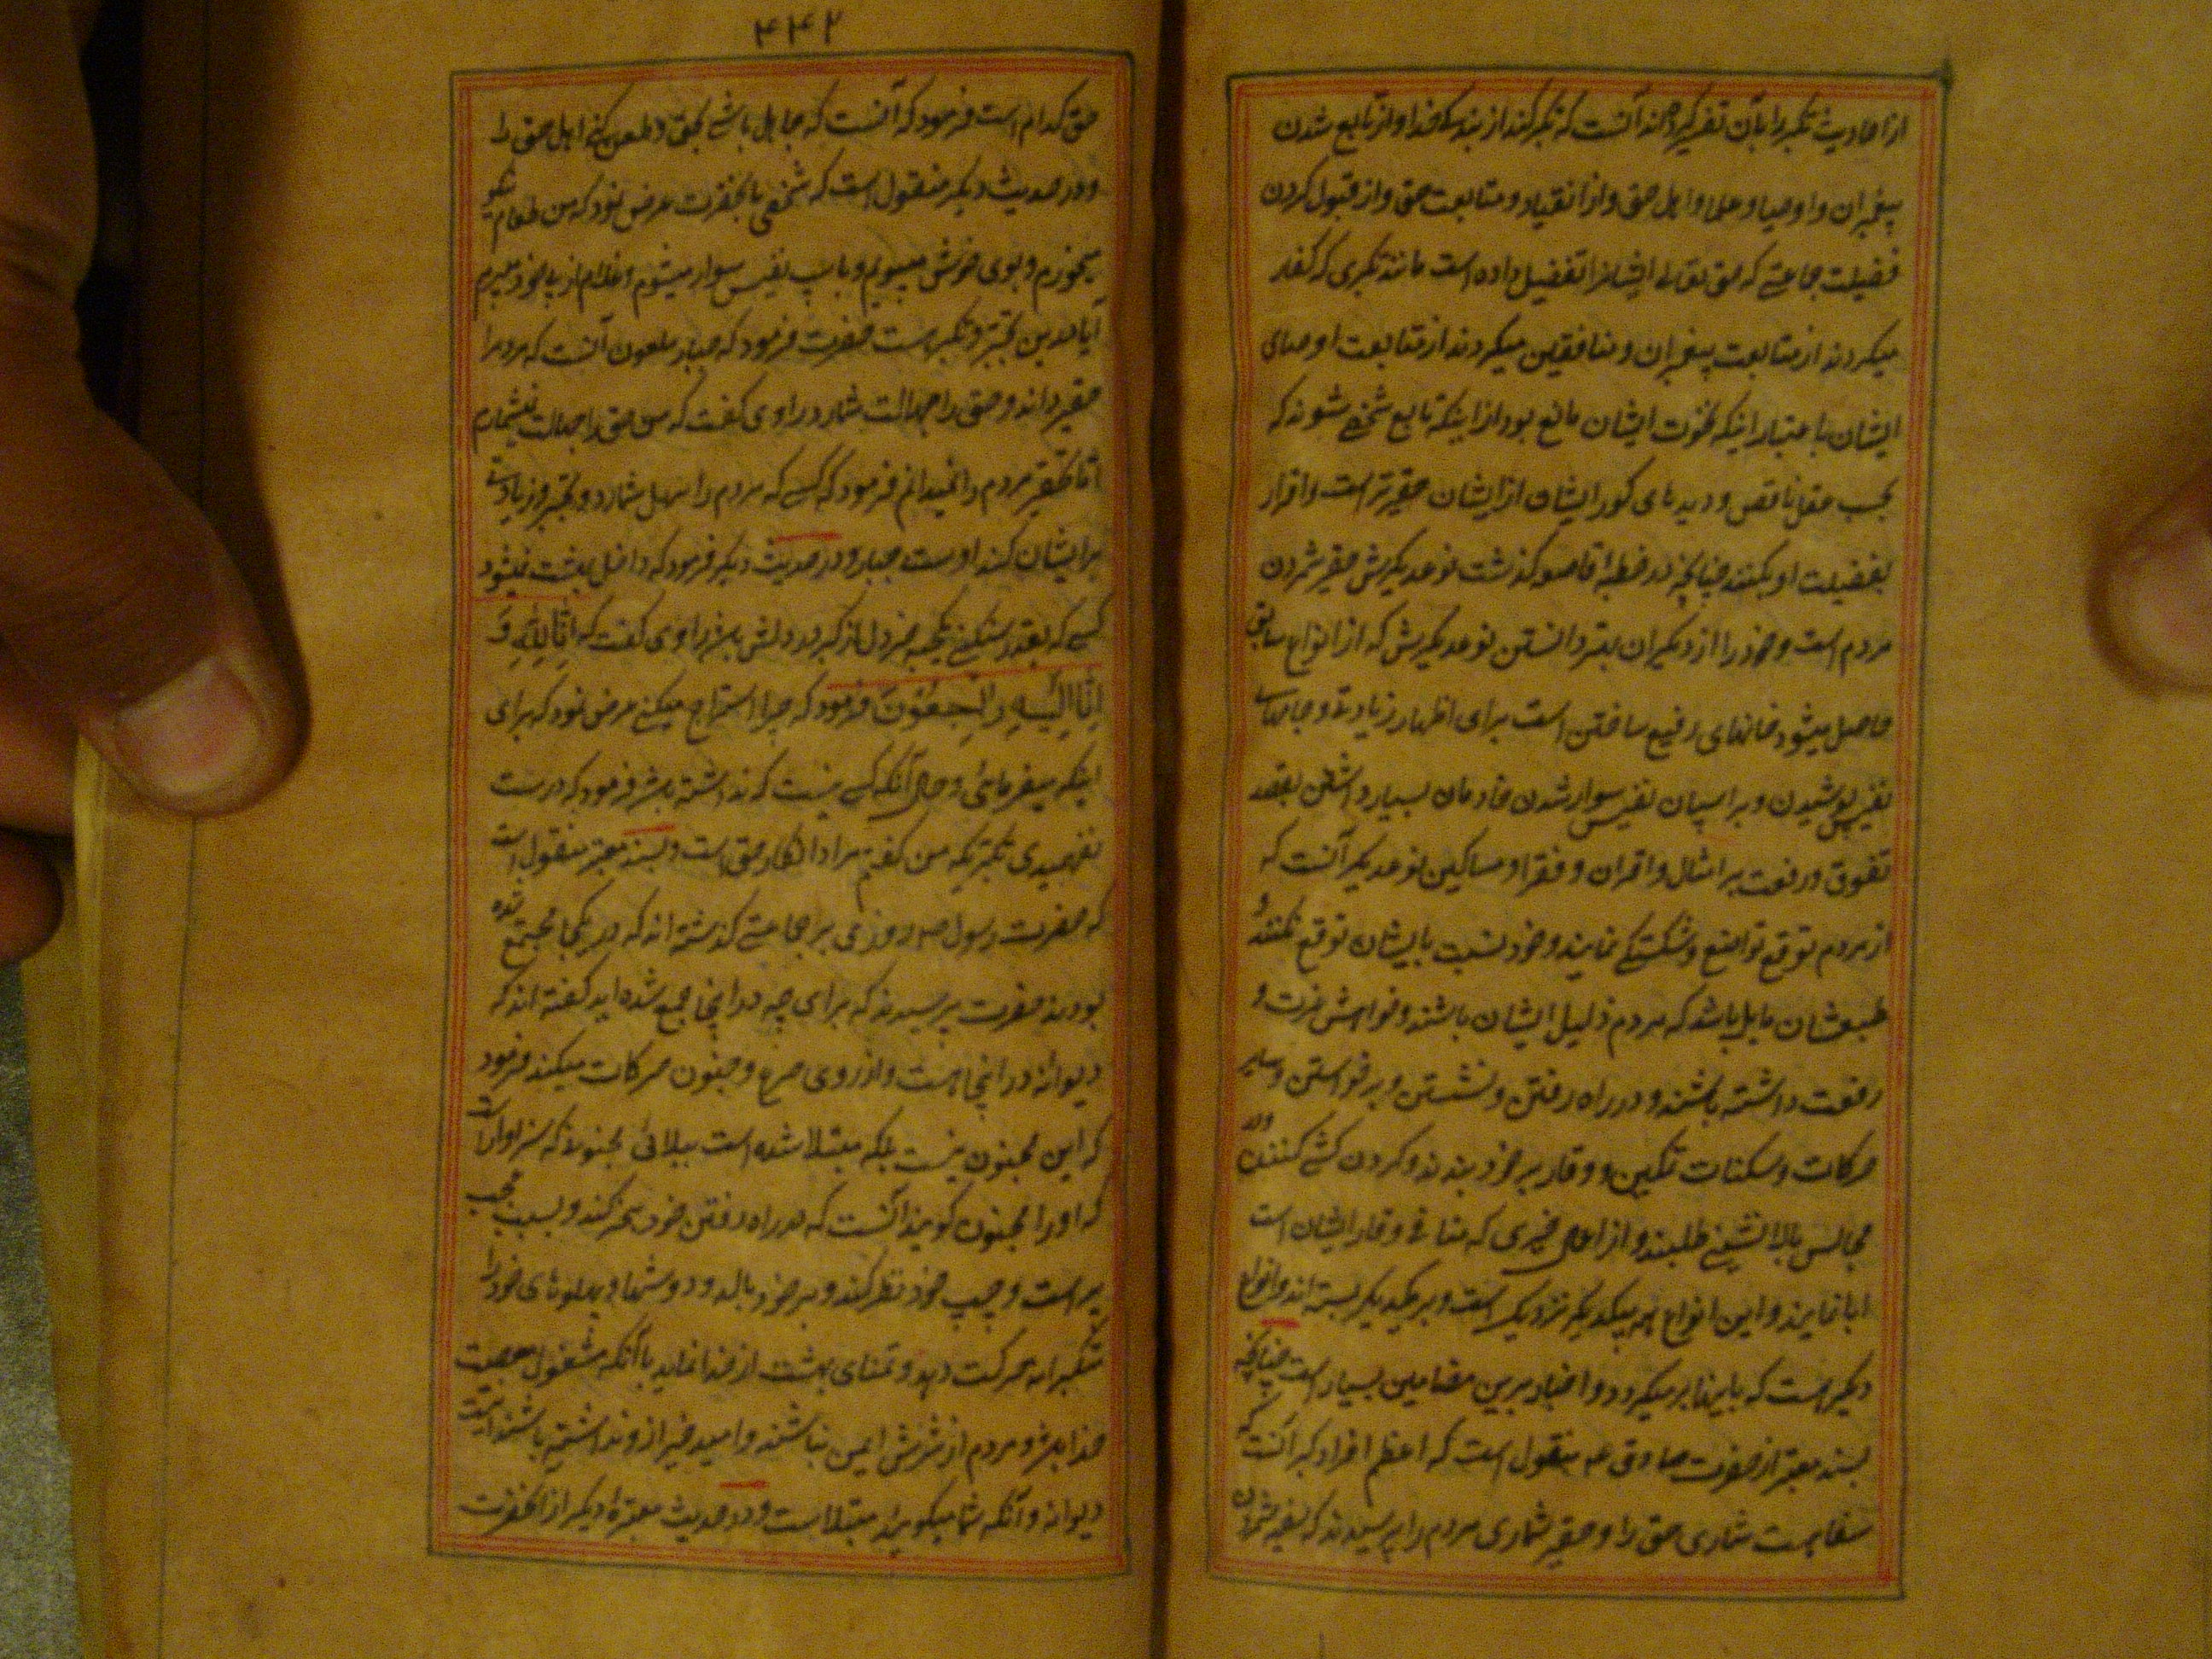 از احادیث تکبر را بآن تفسیر کرده‌اند آنست که تکبر کند از بندگی خدا و از تابع شدن
پیغمبران و اوصیا و علما و اهل حق و از انقیاد و متابعت حق و از قبول کردن
فضیلت جماعتی که حق تعالی ایشانرا تفضیل داده است مانند تکبری که کفار
میکردند از متابعت پیغمبران و منافقین میکردند از متابعت اوصیای
ایشان باعتبار اینکه نخوت ایشان مانع بود از اینکه تابع شخصی شوند که
بحسب عقل ناقص و دیدهای کور ایشان از ایشان حقیرتر است و اقرار
بفضیلت او بکنند چنانچه در خطبه قاصعه گذشت نوع دیگرش حقیر شمردن
مردم است و خود را از دیگران بهتر دانستن نوع دیگرش که از انواع سابق
حاصل میشود خانهای رفیع ساختن است برای اظهار زیادتی و جامهای
نفیس پوشیدن و بر اسپان نفیس سوار شدن خادمان بسیار داشتن بقصد
تفوق و رفعت بر امثال و اقران و فقرا و مساکین نوع دیگر آنست که
از مردم توقع تواضع و شکستگی نمایند و خود نسبت بایشان توقع نکنند و
طبعشان مایل باشد که مردم ذلیل ایشان باشند و خواهش عزت و
رفعت داشته باشند و در راه رفتن و نشستن و برخواستن و سایر
حرکات و سکنات تمکین و وقار بر خود بندند و گردن کشی کنند و در
مجالس بالانشینی طلبند و از اعمال خیری که منافی وقار ایشان است
ابا نمایند و این انواع همه بیکدیگر نزدیک است و بر یکدیگر بسته اند و انواع
دیگر هست که باینها بر میگردد و اخبار برین مضامین بسیار است چنانچه
بسند معتبر از حضرت صادق عه منقول است که اعظم افراد کبر آنست که
سفاهت شماری حق را و حقیر شماری مردم را پرسیدند که سفه شمردن
۴۴۲
حق کدام است فرمود که آنست که جاهل باشی بحق و طعن کنی اهل حق را
و در حدیث دیگر منقول است که شخصی بانحضرت عرض نمود که من طعام نیکو
میخورم و بوی خوش میبویم و باسپ نفیس سوار میشوم و غلام از پی خود میبرم
آیا در این تجبر و تکبر هست حضرت فرمود که جبار ملعون آنست که مردم را
حقیر داند و حق را جهالت شمارد راوی گفت که من حق را جهالت نمیشمارم
اما تحقیر مردم را نمیدانم فرمود که کسی که مردم را سهل شمارد و تجبر و زیادتی
بر ایشان کند اوست جبار و در حدیث دیگر فرمود که داخل بهشت نمیشود
کسی که بقدر سنگینی یکحبه خردل از کبر در دلش باشد راوی گفت که اِنّا لِلّهِ وَ
اِنّا اِلَیْهِ راجِعُوْنَ فرمود که چرا استرجاع میکنی عرض نمود که برای
اینکه میفرمائی و حال آنکه کسی نیست که نداشته باشد فرمود که درست
نفهمیدی تکبریکه من گفتم مراد انکار حق است و بسند معتبر منقول است
که حضرت رسول صه روزی بر جماعتی گذشته اند که در یکجا مجتمع شده
بودند حضرت پرسیدند که برای چه در اینجا جمع شده اید گفته اند که
دیوانهٔ در اینجا هست و از روی صرع و جنون حرکات میکند فرمود
که این مجنون نیست بلکه مبتلا شده است ببلائی مجنونی که سزاوار است
که او را مجنون گویند آنست که در راه رفتن خود تبختر کند و بسبب عجب
براست و چپ خود نظر کند و بر خود بالد و دوشها و پهلوهای خود را
متکبرانه حرکت دهد و تمنای بهشت از خدا نماید با آنکه مشغول معصیت
خدا باشد و مردم از شرش ایمن نباشند و امید خیر ازو نداشته باشند اینست
دیوانه و آنکه شما میگوئید مبتلا است و در حدیث معتبره دیگر از انحضرت